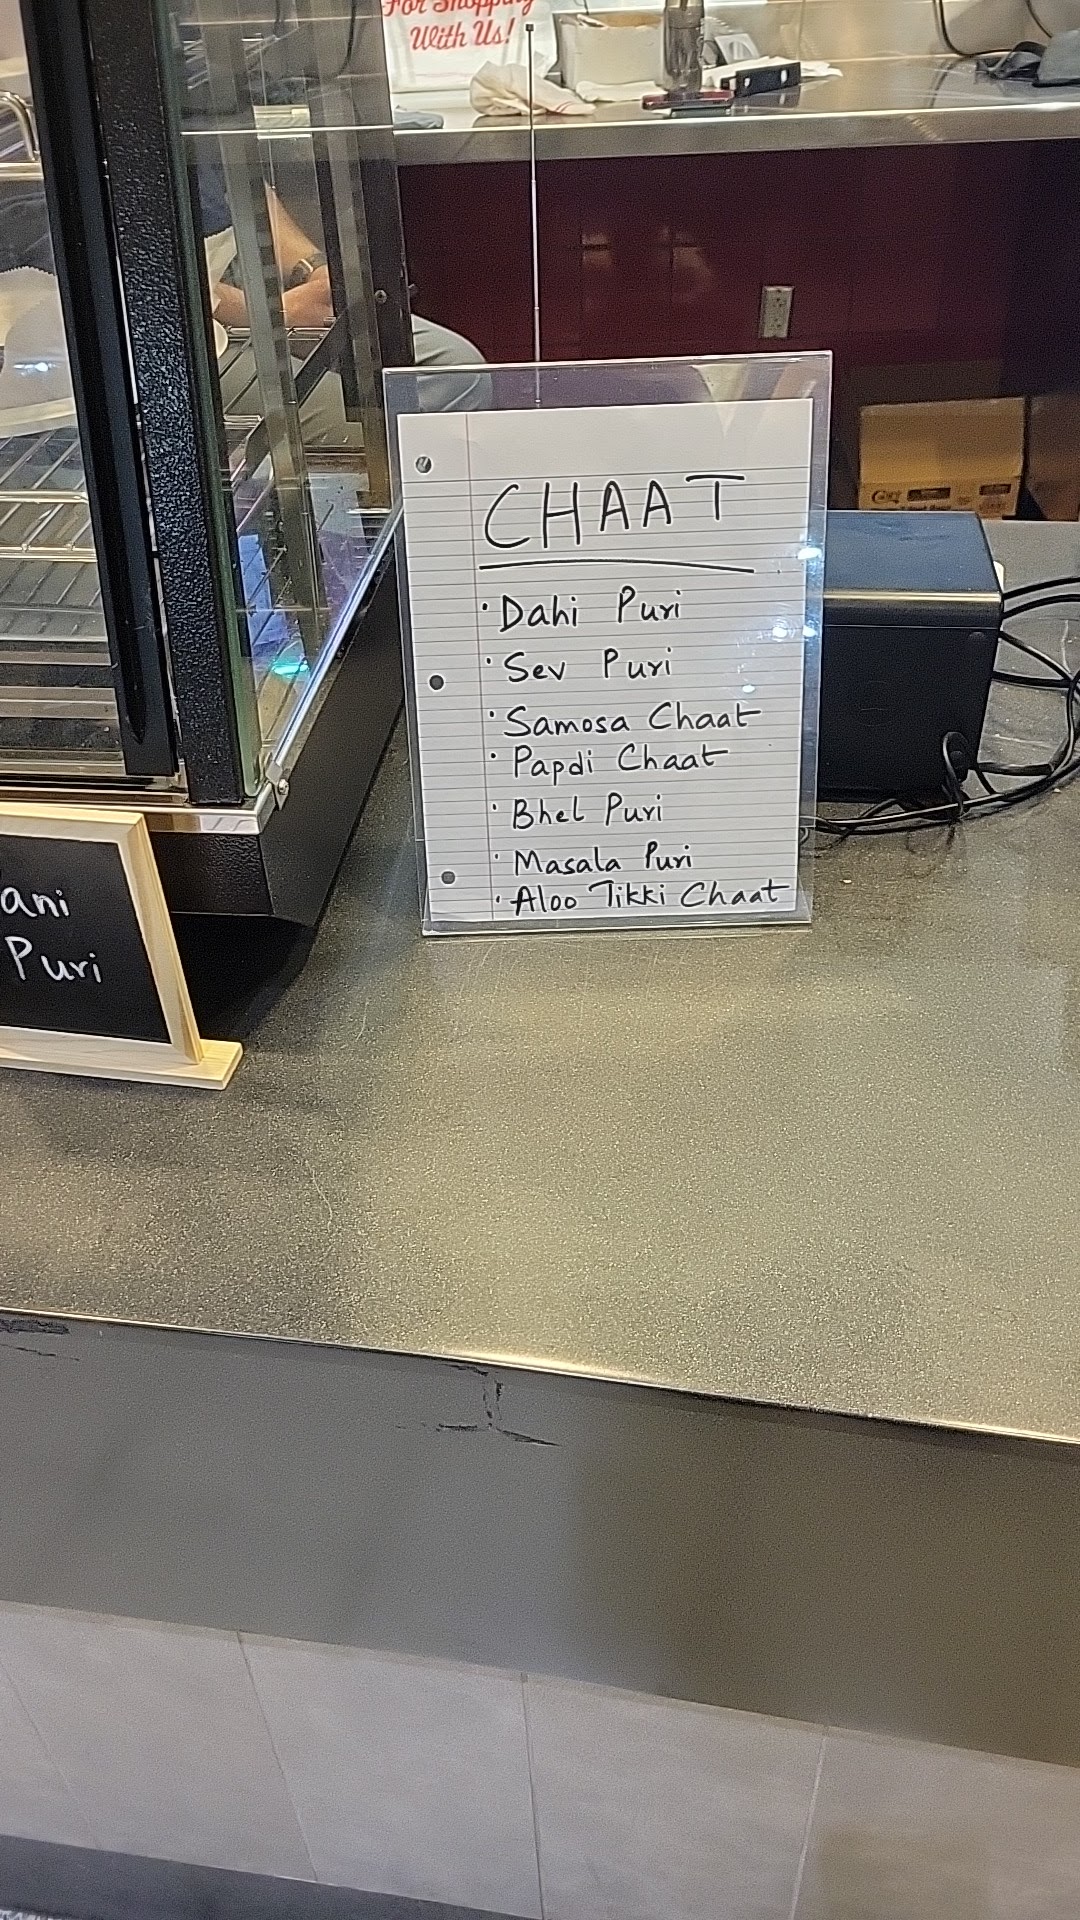 For Shopping
With Us!
CHAAT
• Dahi Puri
• Sev Puri
• Samosa Chaat
• Papdi Chaat
• Bhel Puri
• Masala Puri
• Aloo Tikki Chaat
ani
Puri